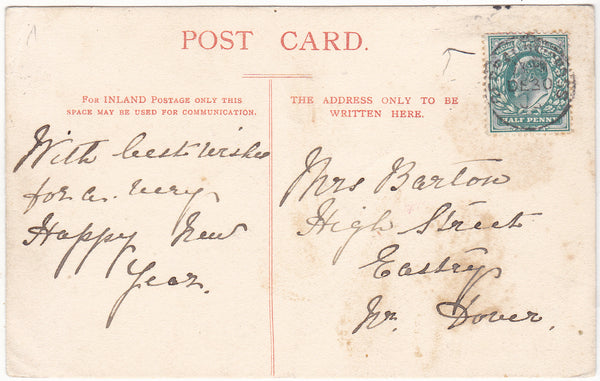 POST CARD.
FOR INLAND POSTAGE ONLY THIS
SPACE MAY BE USED FOR COMMUNICATION.
THE ADDRESS ONLY TO BE
WRITTEN HERE.
HALF PENNY
With best wishes
for a very
Happy New
Year.
Mrs Barton
High Street
Eastry
Nr. Dover.